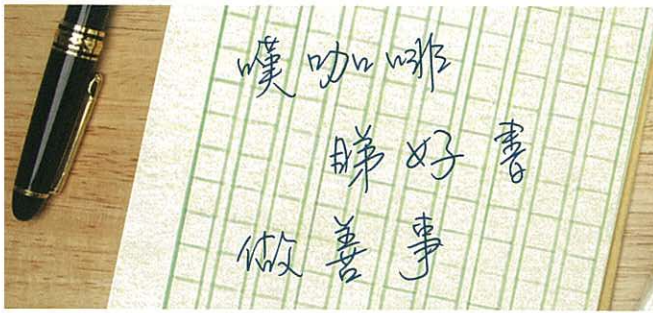 嘆咖啡
睇好書
做善事